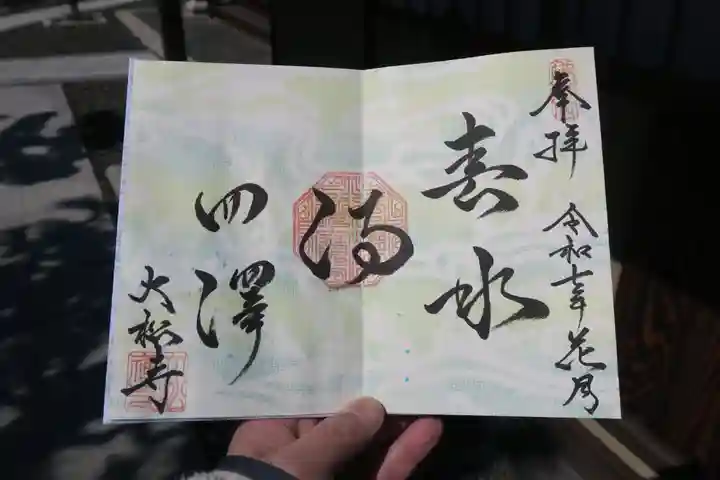 奉拝
令和七年花月
春水
満
四澤
大松寺